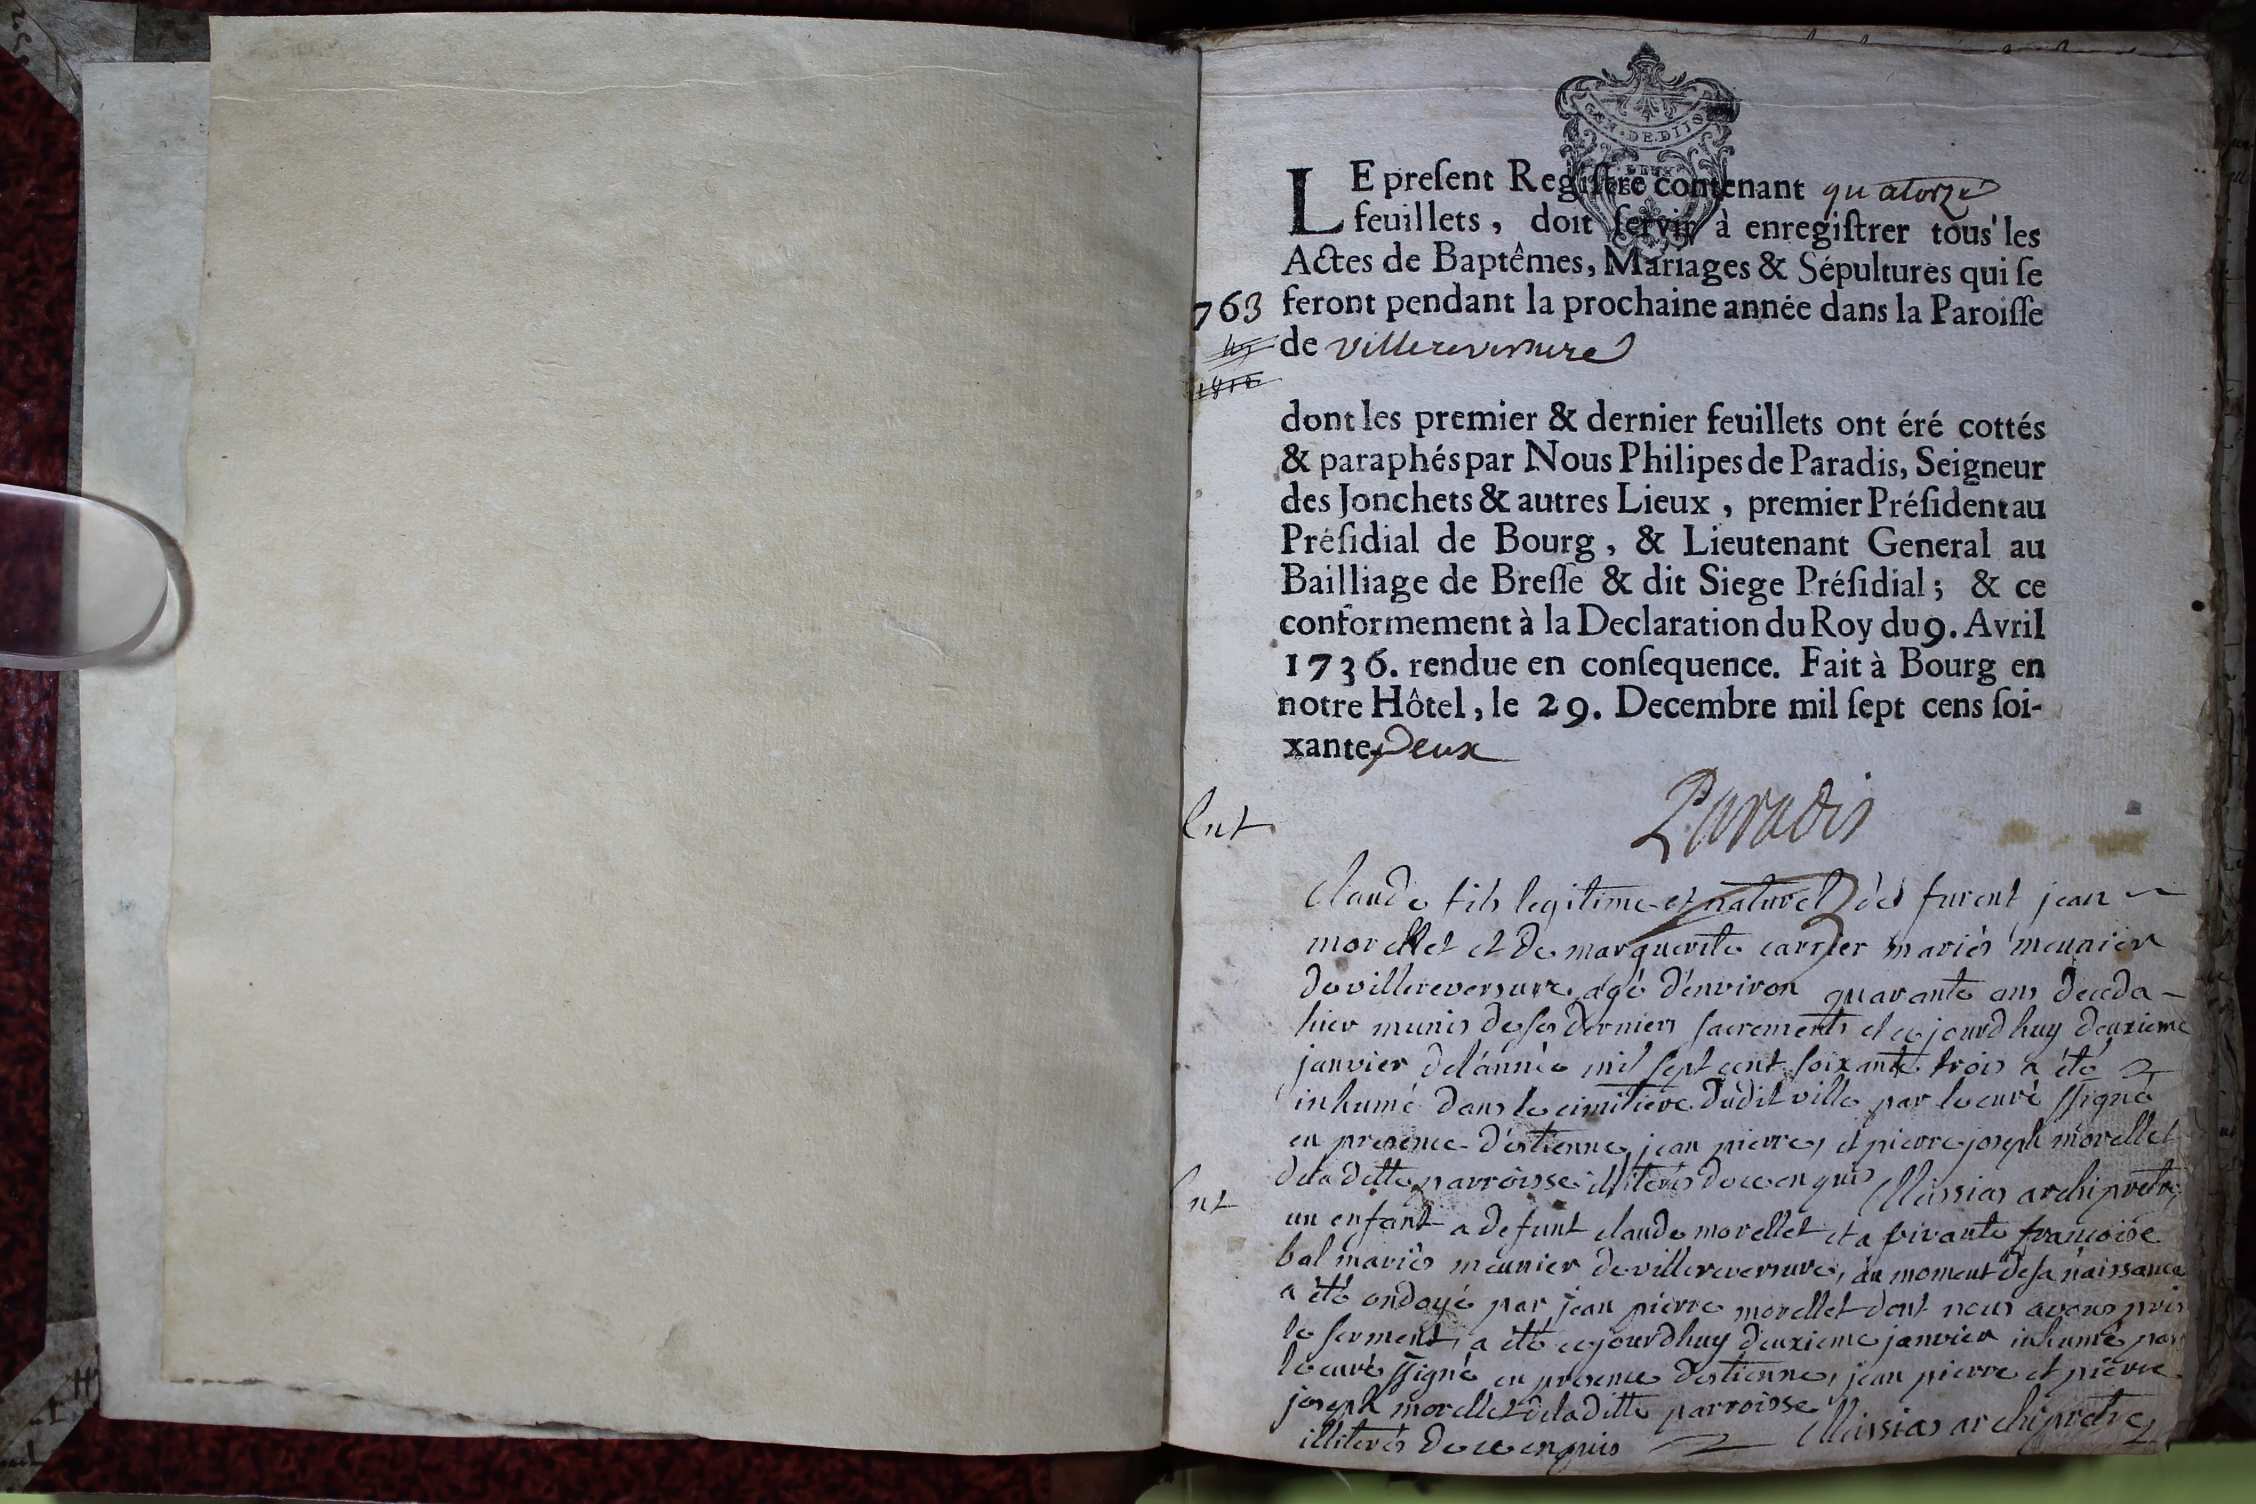 GEN. DE DIJON
LE preſent Regiſtre contenant quatorze
feuillets, doit ſervir à enregiſtrer tous les
Actes de Baptêmes, Mariages & Sépultures qui ſe
763 feront pendant la prochaine année dans la Paroiſſe
de villereversure
dont les premier & dernier feuillets ont éré cottés
& paraphés par Nous Philipes de Paradis, Seigneur
des Jonchets & autres Lieux, premier Préſident au
Préſidial de Bourg, & Lieutenant General au
Bailliage de Breſſe & dit Siege Préſidial; & ce
conformement à la Declaration du Roy du 9. Avril
1736. rendue en conſequence. Fait à Bourg en
notre Hôtel, le 29. Decembre mil ſept cens ſoi-
xante Deux
Paradis
Ent
Claude fils legitime et naturel des furent jean
morellet et de marguerite carrier mariés meunier
de villereversure agé d'environ quarante ans deceda
hier munis de ses derniers sacrements et cejourdhuy deuxieme
janvier de l'année mil sept cent soixante trois a été
inhumé dans le cimitiere dudit ville par le curé ssigné
en presence d'estienne, jean pierre, et pierre joseph morellet
de la ditte parroisse illiterés de ce enquis Messias archipretre
Ent
un enfant a defunt claude morellet et a vivante françoise
bal mariés meunier de villereversure, au moment de sa naissance
a été ondoyé par jean pierre morellet dont nous avons pris
le serment, a été cejourdhuy deuxieme janvier inhumé par
le curé ssigné en presence d'estienne, jean pierre et pierre
joseph morellet de la ditte parroisse
illiterés de ce enquis Messias archipretre